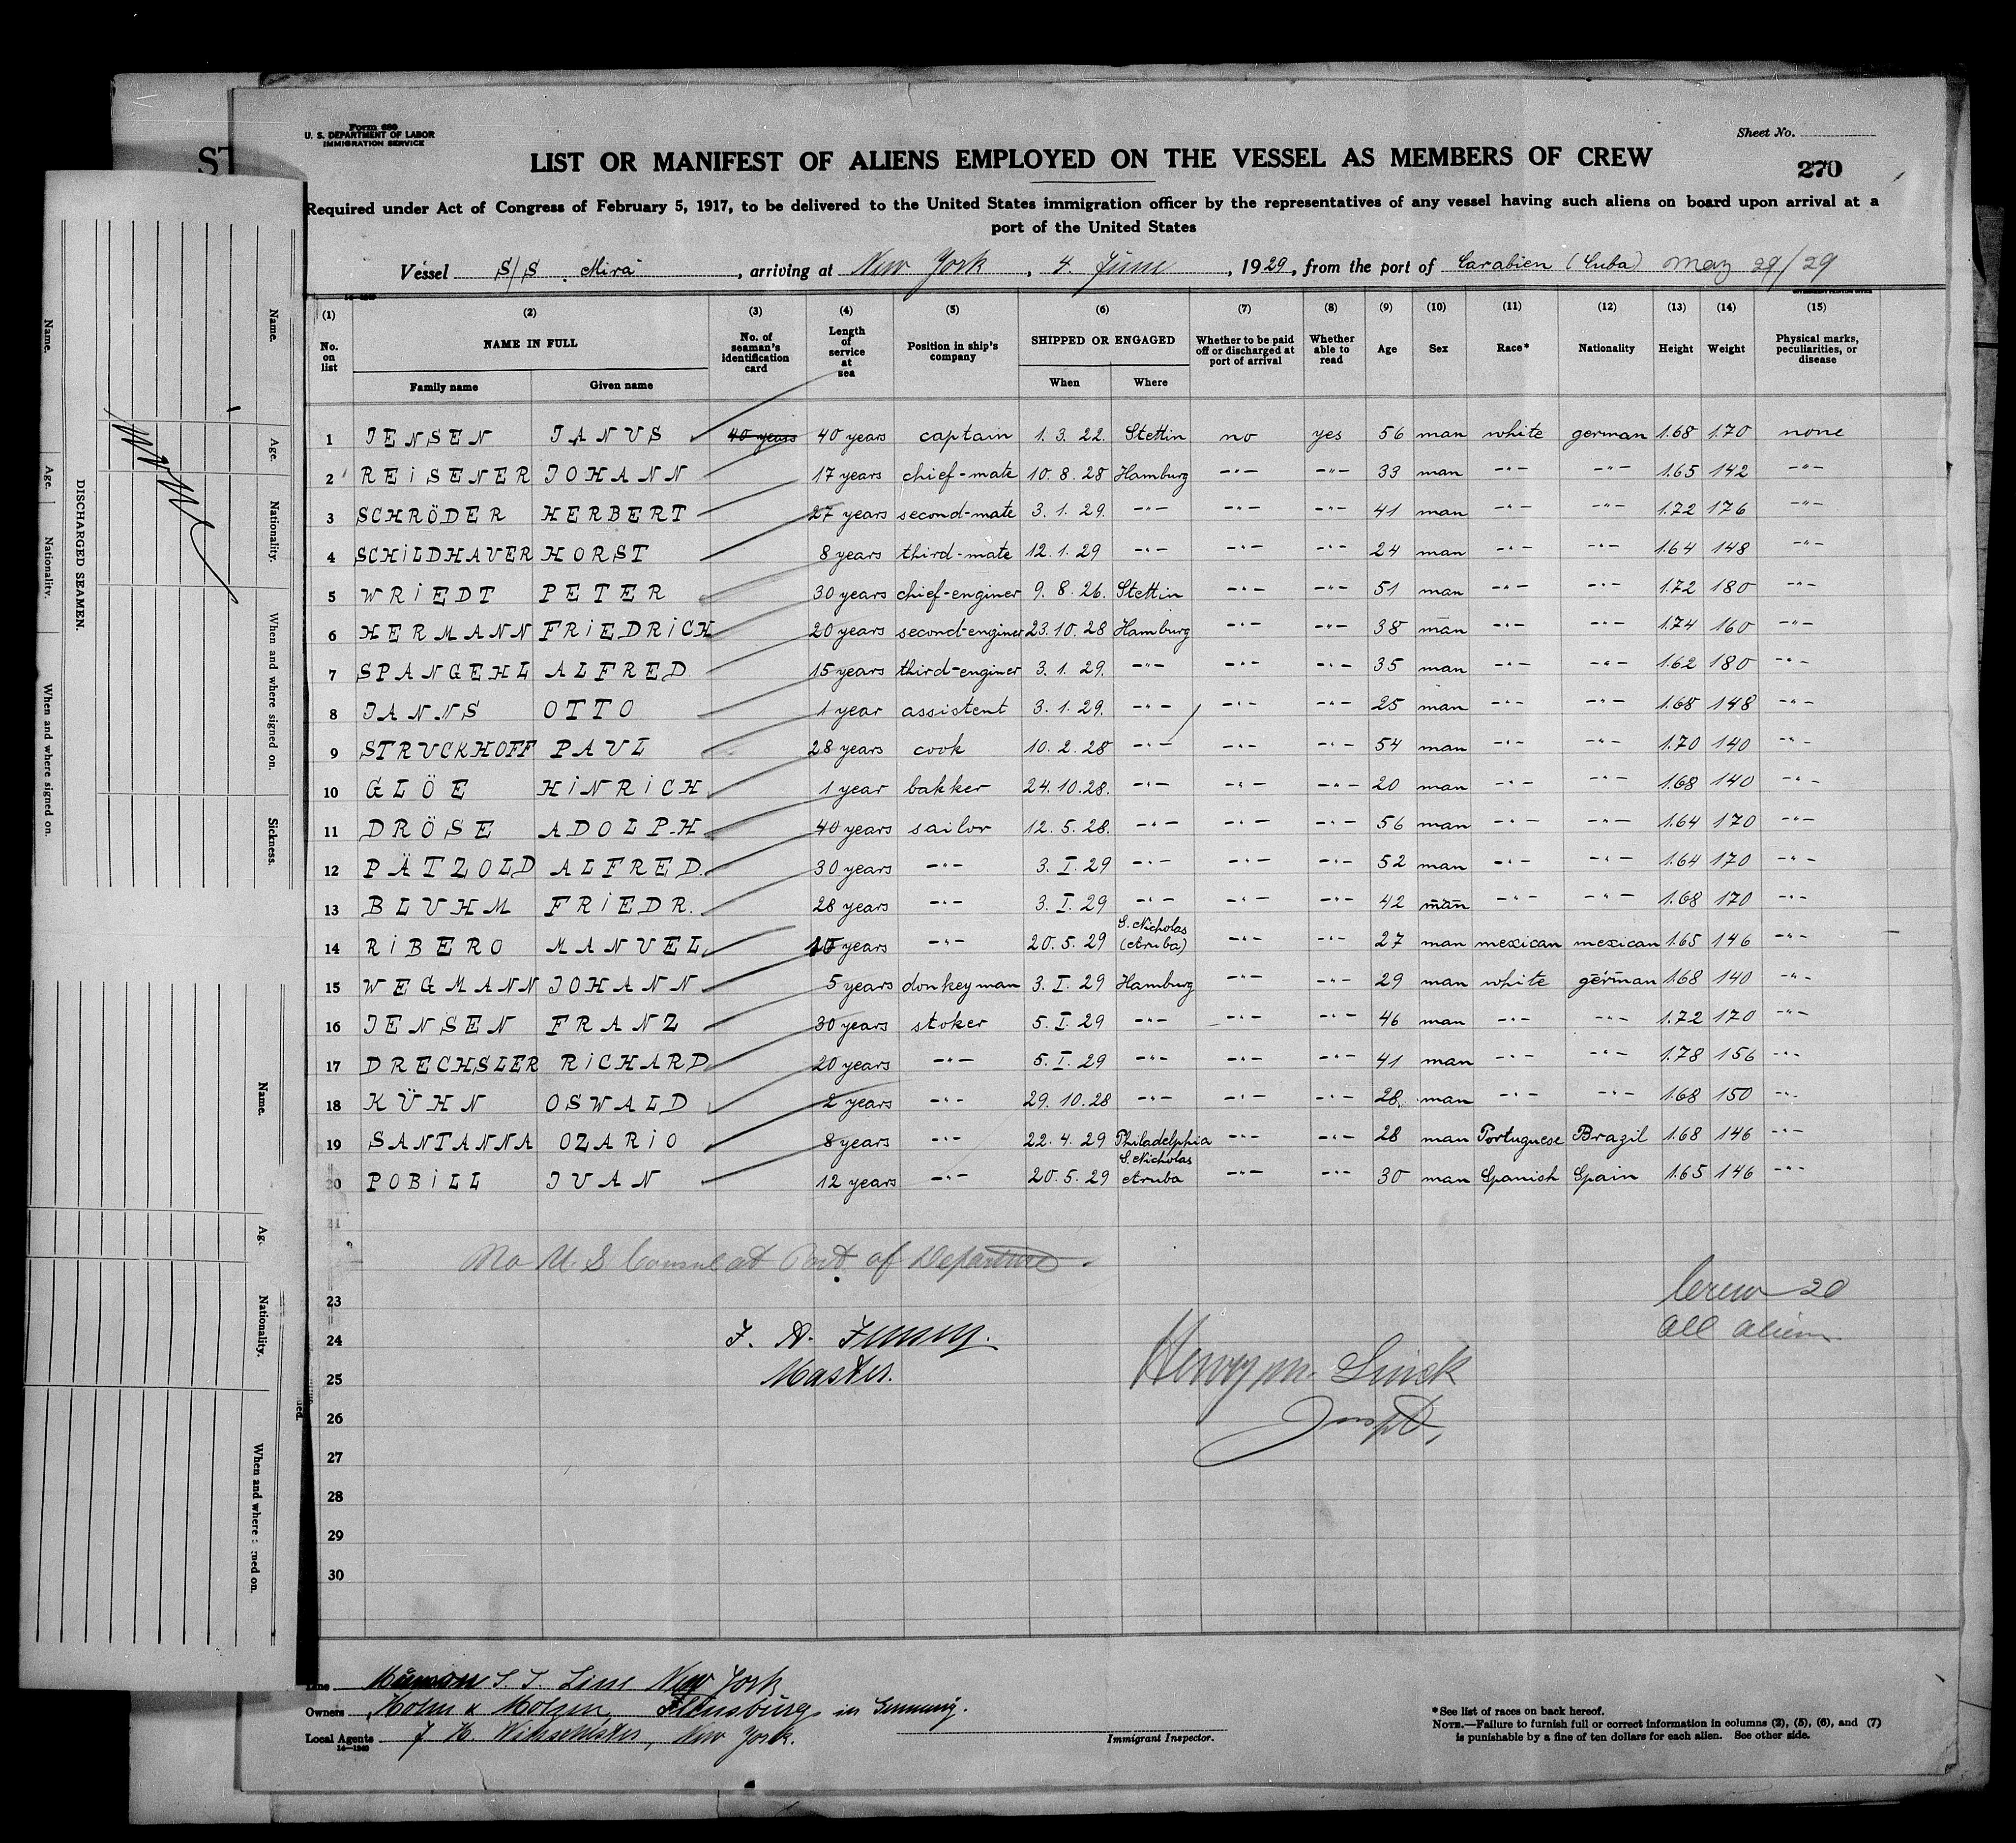 Form 689
U. S. DEPARTMENT OF LABOR
IMMIGRATION SERVICE
Sheet No.
270
LIST OR MANIFEST OF ALIENS EMPLOYED ON THE VESSEL AS MEMBERS OF CREW
Required under Act of Congress of February 5, 1917, to be delivered to the United States immigration officer by the representatives of any vessel having such aliens on board upon arrival at a
port of the United States
Vessel S/S Mira, arriving at New York, 4. June, 1929, from the port of Carabien (Cuba) May 29/29
(1) (2) (3) (4) (5) (6) (7) (8) (9) (10) (11) (12) (13) (14) (15)
No. on list NAME IN FULL No. of seaman's identification card Length of service at sea Position in ship's company SHIPPED OR ENGAGED Whether to be paid off or discharged at port of arrival Whether able to read Age Sex Race* Nationality Height Weight Physical marks, peculiarities, or disease
Family name Given name When Where
1 JENSEN JANUS 40 years 40 years captain 1. 3. 22. Stettin no yes 56 man white german 1.68 1.70 none
2 REISENER JOHANN 17 years chief-mate 10. 8. 28 Hamburg -"- -"- 33 man -"- -"- 1.65 142 -"-
3 SCHRÖDER HERBERT 27 years second-mate 3. 1. 29. -"- -"- -"- 41 man -"- -"- 1.72 176 -"-
4 SCHILDHAUER HORST 8 years third-mate 12. 1. 29 -"- -"- -"- 24 man -"- -"- 1.64 148 -"-
5 WRIEDT PETER 30 years chief-enginer 9. 8. 26. Stettin -"- -"- 51 man -"- -"- 1.72 180 -"-
6 HERMANN FRIEDRICH 20 years second-enginer 23. 10. 28 Hamburg -"- -"- 38 man -"- -"- 1.74 160 -"-
7 SPANGEHL ALFRED 15 years third-enginer 3. 1. 29. -"- -"- -"- 35 man -"- -"- 1.62 180 -"-
8 JANNS OTTO 1 year assistent 3. 1. 29. -"- -"- -"- 25 man -"- -"- 1.68 148 -"-
9 STRUCKHOFF PAUL 28 years cook 10. 2. 28 -"- -"- -"- 54 man -"- -"- 1.70 140 -"-
10 GLÖE HINRICH 1 year bakker 24. 10. 28. -"- -"- -"- 20 man -"- -"- 1.68 140 -"-
11 DRÖSE ADOLPH 40 years sailor 12. 5. 28. -"- -"- -"- 56 man -"- -"- 1.64 170 -"-
12 PÄTZOLD ALFRED. 30 years -"- 3. I. 29 -"- -"- -"- 52 man -"- -"- 1.64 170 -"-
13 BLUHM FRIEDR. 28 years -"- 3. I. 29 -"- -"- -"- 42 man -"- -"- 1.68 170 -"-
14 RIBERO MANUEL 10 years -"- 20. 5. 29 S. Nicholas (Aruba) -"- -"- 27 man mexican mexican 1.65 146 -"-
15 WEGMANN JOHANN 5 years donkeyman 3. I. 29 Hamburg -"- -"- 29 man white german 1.68 140 -"-
16 JENSEN FRANZ 30 years stoker 5. I. 29 -"- -"- -"- 46 man -"- -"- 1.72 170 -"-
17 DRECHSLER RICHARD 20 years -"- 5. I. 29 -"- -"- -"- 41 man -"- -"- 1.78 156 -"-
18 KÜHN OSWALD 2 years -"- 29. 10. 28 -"- -"- -"- 28. man -"- -"- 1.68 150 -"-
19 SANTANNA OZARIO 8 years -"- 22. 4. 29 Philadelphia -"- -"- 28 man Portuguese Brazil 1.68 146 -"-
20 POBILL JUAN 12 years -"- 20. 5. 29 S. Nicholas Aruba -"- -"- 30 man Spanish Spain 1.65 146 -"-
21
No U S Consul at Port of Departure
23
Crew 20
All aliens
24
25 Master.
Henry M.
Inspt,
26
27
28
29
30
Line Munson S. S. Line New York
Owners Holm & Molzen, Flensburg in Germany.
Local Agents New York.
14—1240
Immigrant Inspector.
*See list of races on back hereof.
NOTE.—Failure to furnish full or correct information in columns (2), (5), (6), and (7)
is punishable by a fine of ten dollars for each alien. See other side.
DISCHARGED SEAMEN.
Name. Age. Nationality. When and where signed on.
Name. Age. Nationality. When and where signed on. Sickness.
Name. Ag. Nationality. When and where signed on.
ST